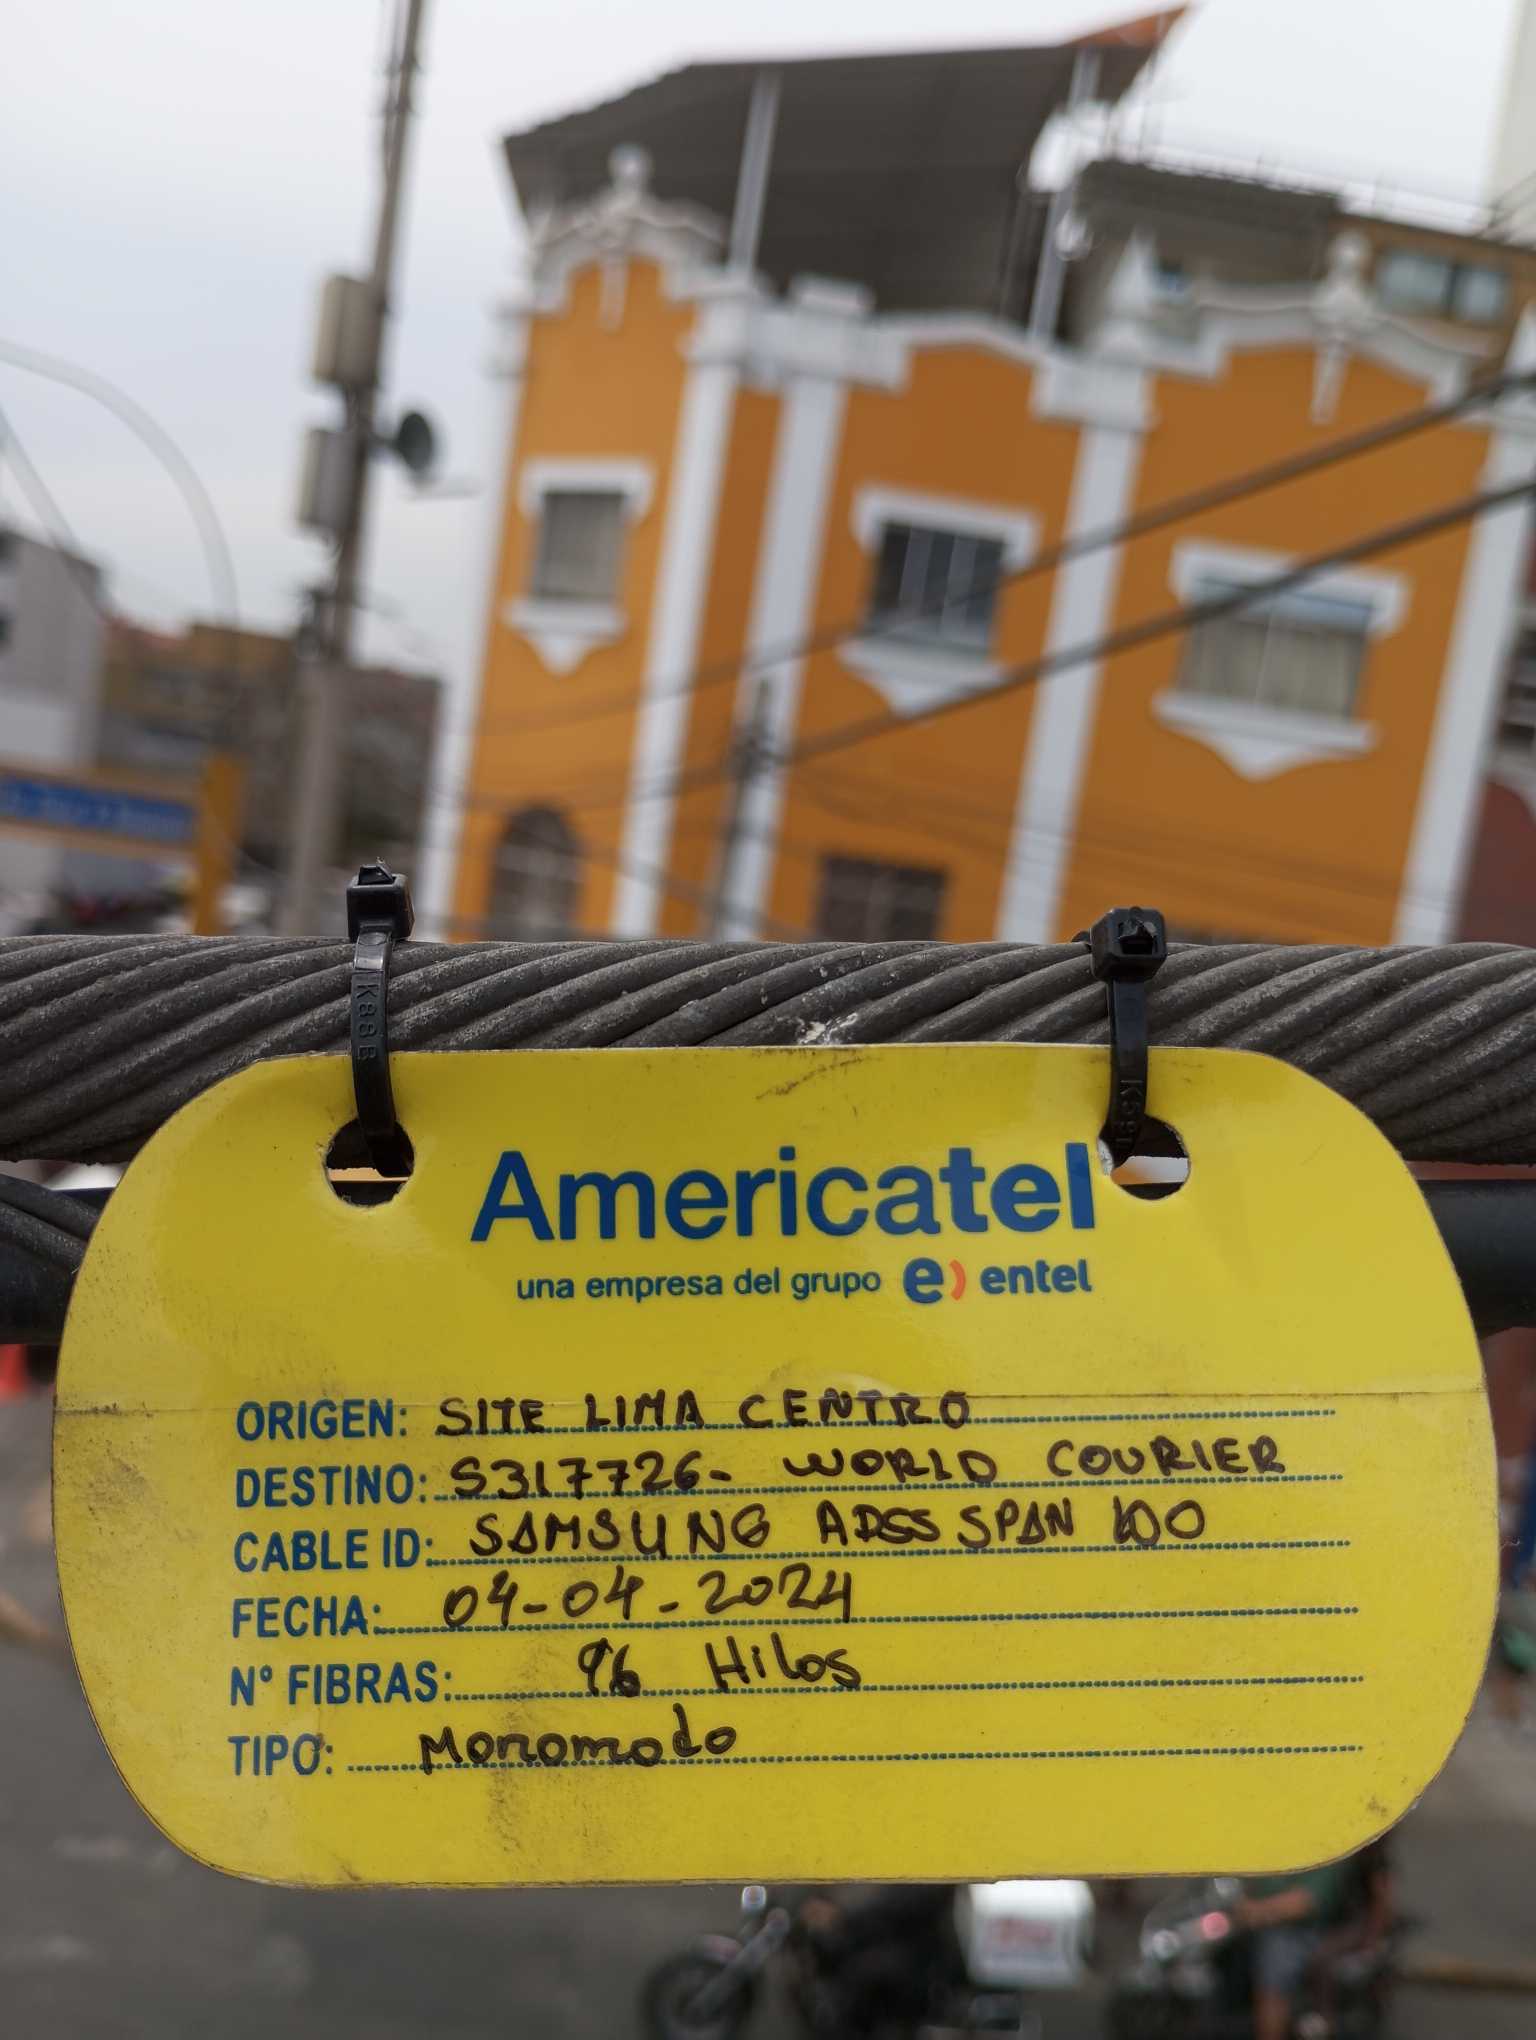 K88B
K59L
Americatel
una empresa del grupo e) entel
ORIGEN: SITE LIMA CENTRO
DESTINO: S317726- WORLD COURIER
CABLE ID: SAMSUNG ADSS SPAN 100
FECHA: 04-04-2024
N° FIBRAS: 96 Hilos
TIPO: Monomodo